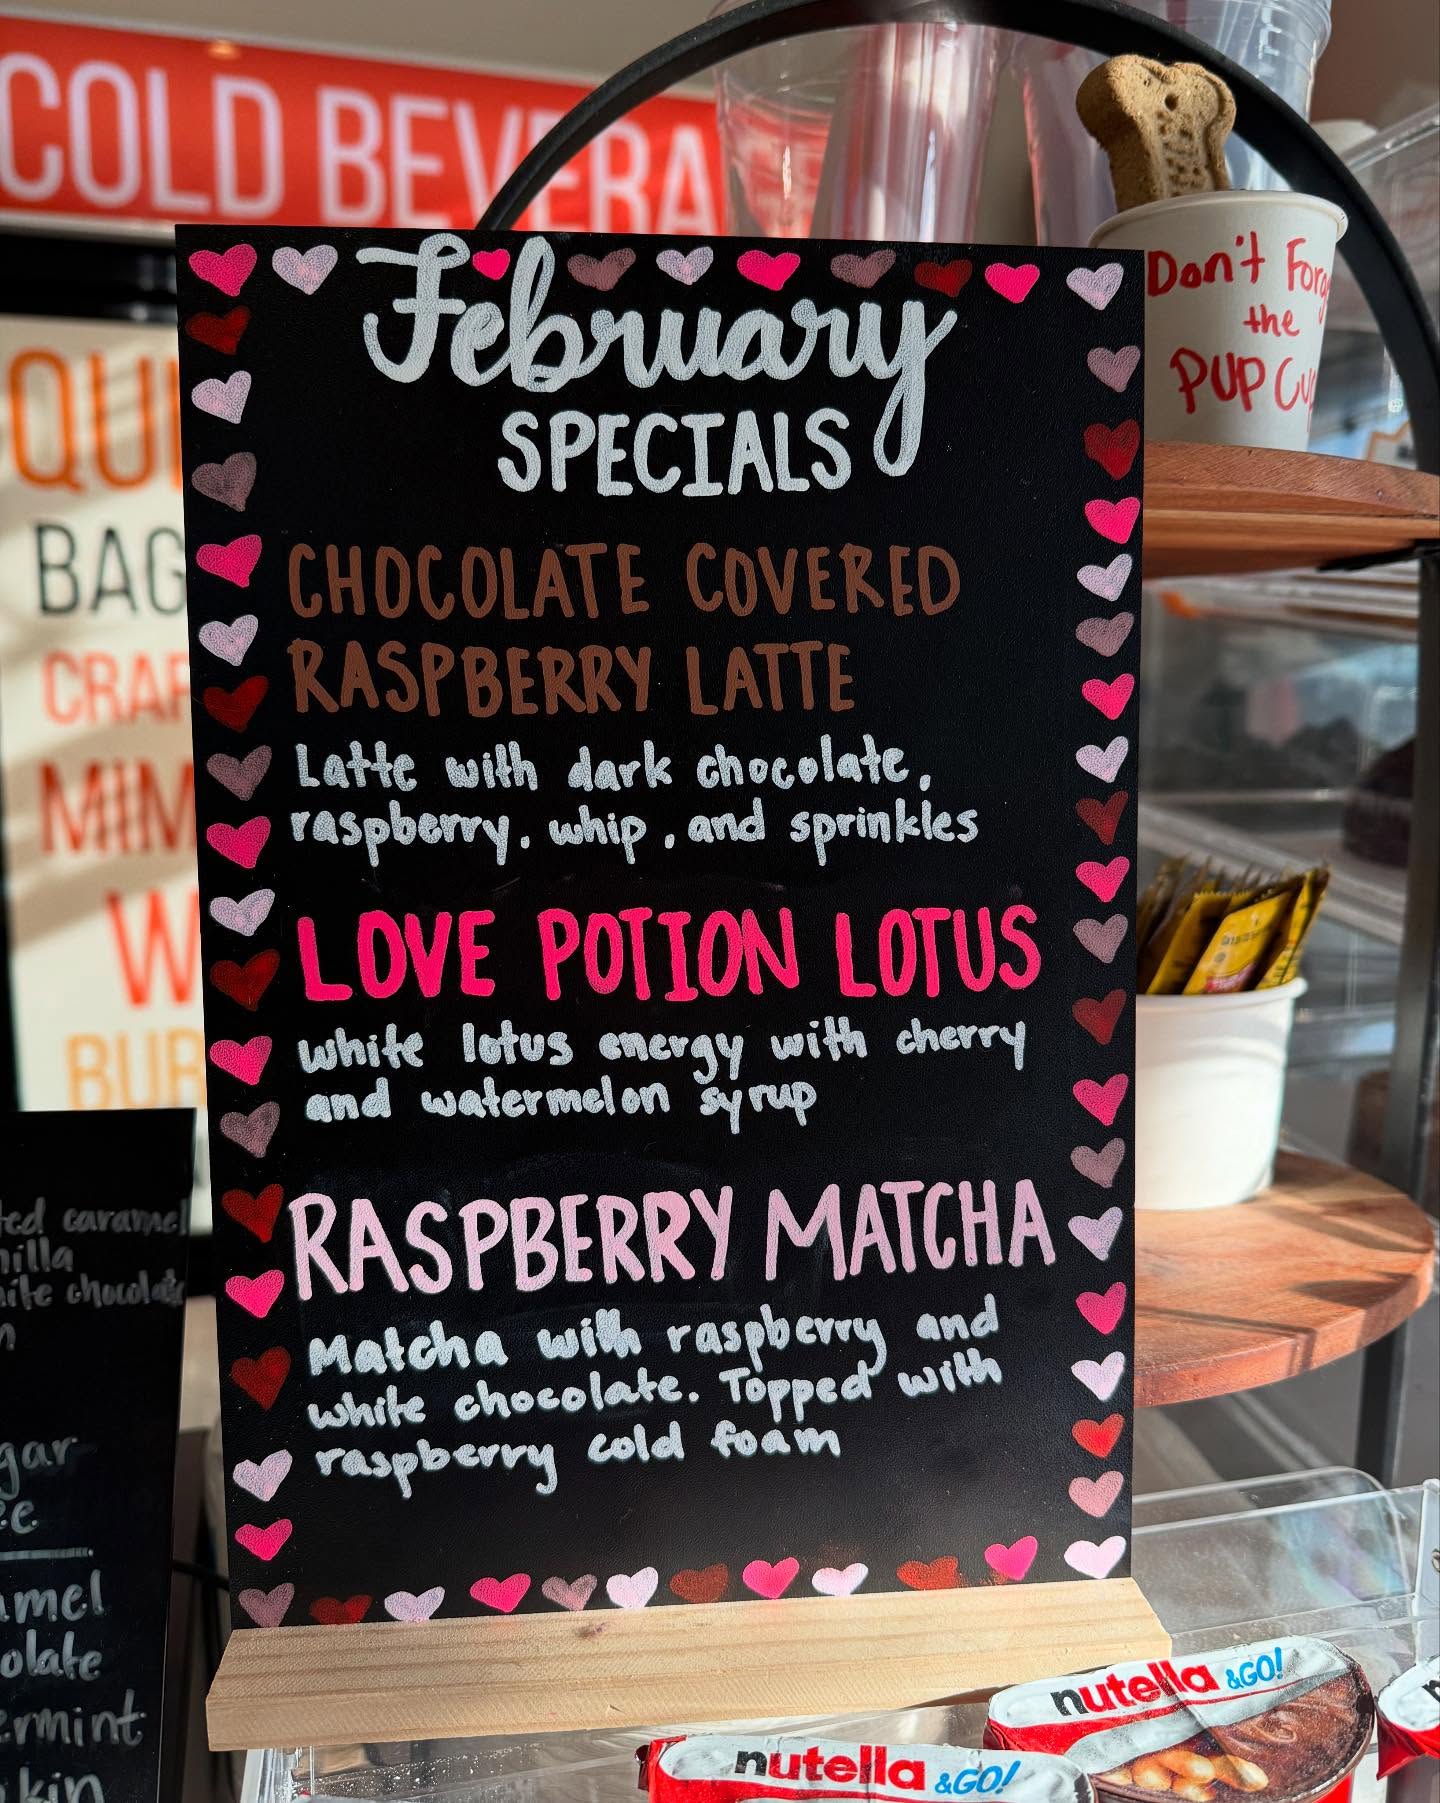 COLD BEVERA
Don't Forg
the
PUP Cup
February
SPECIALS
CHOCOLATE COVERED
RASPBERRY LATTE
Latte with dark chocolate,
raspberry, whip, and sprinkles
LOVE POTION LOTUS
white lotus energy with cherry
and watermelon syrup
RASPBERRY MATCHA
Matcha with raspberry and
white chocolate. Topped with
raspberry cold foam
QUI
BAG
CRAF
MIM
W
BUR
ted caramel
nilla
hite chocolate
n
gar
ee
amel
olate
ermint
kin
nutella &GO!
nutella &GO!